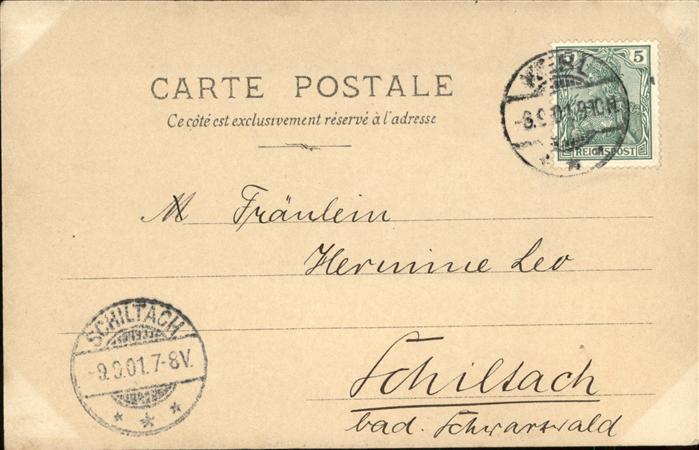 CARTE POSTALE
Ce côté est exclusivement réservé à l'adresse
5
REICHSPOST
9-10.N.
M Fräulein
Hermine Leo
Schiltach
bad. Schwarzwald
SCHILTACH
-9.9.01.7-8V.